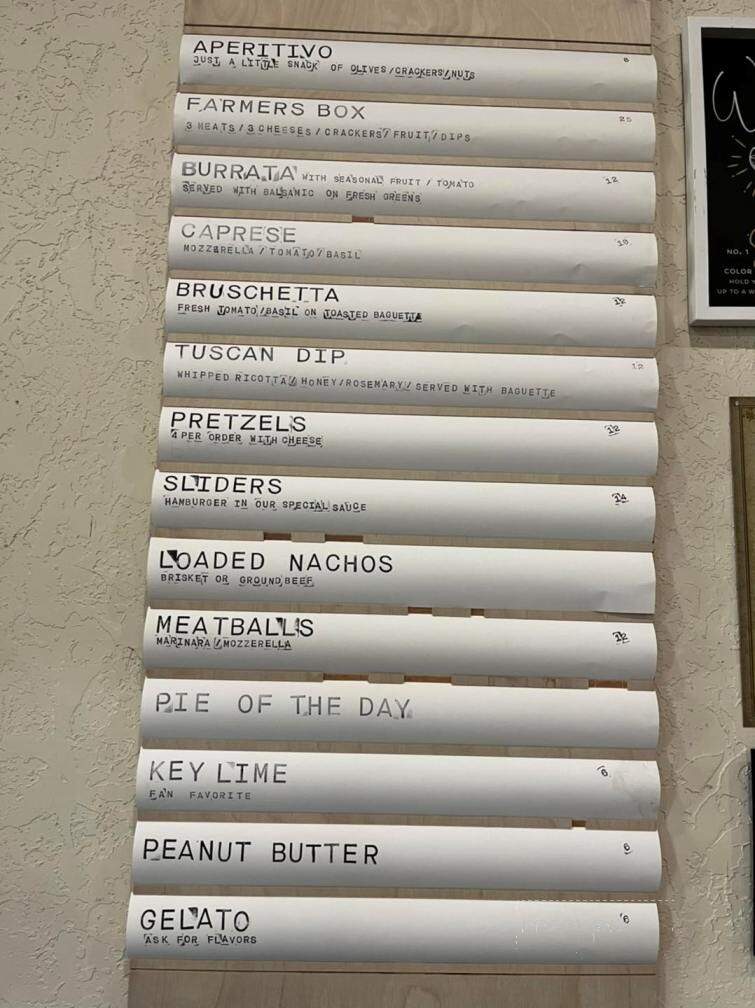 APERITIVO
JUST A LITTLE SNACK OF OLIVES/CRACKERS/NUTS
FARMERS BOX 25
3 MEATS/3 CHEESES/CRACKERS/FRUIT/DIPS
BURRATA WITH SEASONAL FRUIT / TOMATO 12
SERVED WITH BALSAMIC ON FRESH GREENS
CAPRESE
MOZZARELLA/TOMATO/BASIL
BRUSCHETTA 12
FRESH TOMATO/BASIL ON TOASTED BAGUETTE
TUSCAN DIP 12
WHIPPED RICOTTA/HONEY/ROSEMARY/SERVED WITH BAGUETTE
PRETZELS 12
4 PER ORDER WITH CHEESE
SLIDERS 14
HAMBURGER IN OUR SPECIAL SAUCE
LOADED NACHOS
BRISKET OR GROUND BEEF
MEATBALLS 12
MARINARA/MOZZERELLA
PIE OF THE DAY
KEY LIME
FAN FAVORITE
PEANUT BUTTER
GELATO 6
ASK FOR FLAVORS
NO. 1
COLOR
HOLD
UP TO A